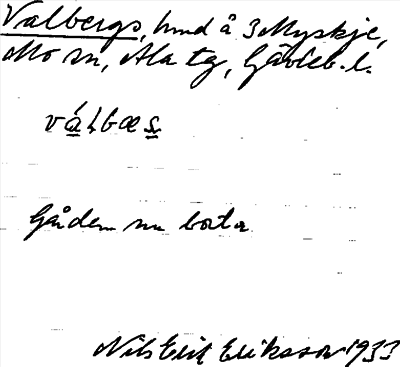 Valbergs, hmd å 3 Myskje,
Mo sn, Ala tg, Gävleb. l.
válbæs
Gården nu borta
Nils Erik Eriksson 1933